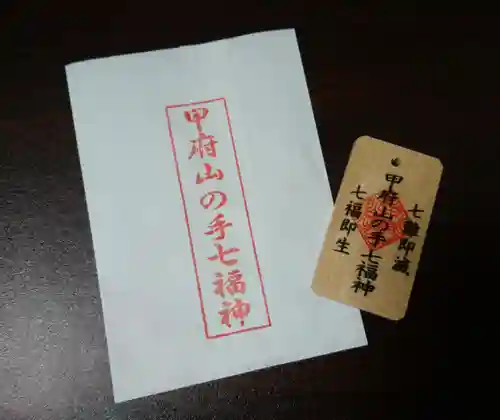 甲府山の手七福神
七難即滅
甲府山の手七福神
七福即生